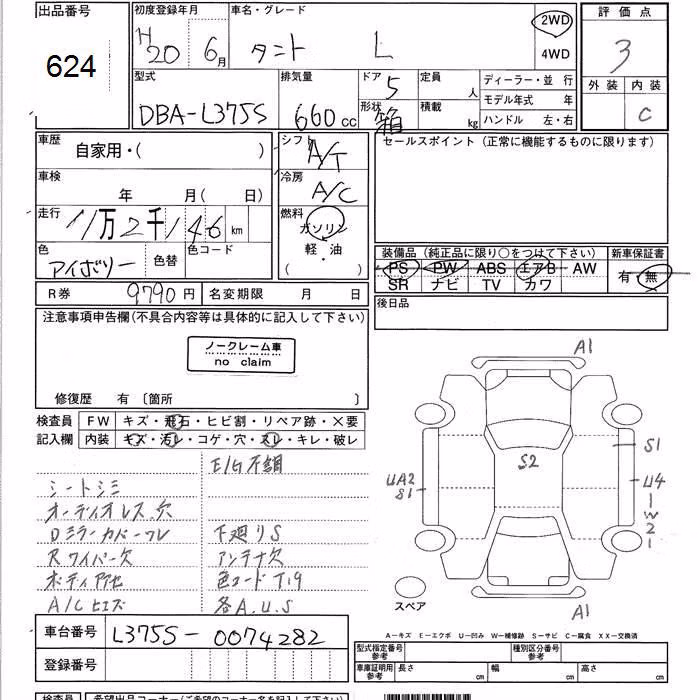 出品番号
624
初度登録年月
H20 6月
車名・グレード
タント L
2WD
4WD
評価点
3
外装 内装
C
型式
DBA-L375S
排気量
660cc
ドア 5
形状 箱
定員 人
積載 kg
ディーラー・並行
モデル年式 年
ハンドル 左・右
車歴
自家用・( )
車検
年 月( 日)
走行
11万2千146km
色
アイボリー
色替
色コード
シフト
A/T
冷房
A/C
燃料
ガソリン
軽・油
( )
セールスポイント (正常に機能するものに限ります)
装備品 (純正品に限り○をつけて下さい)
PS PW ABS エアB AW
SR ナビ TV カワ
新車保証書
有・無
R券 9790円
名変期限 月 日
後日品
注意事項申告欄(不具合内容等は具体的に記入して下さい)
ノークレーム車
no claim
修復歴 有 〔箇所 〕
検査員
記入欄
FW キズ・飛石・ヒビ割・リペア跡・×要
内装 キズ・汚レ・コゲ・穴・スレ・キレ・破レ
E/G不調
シートシミ
オーディオレス.穴
Dミラーカバーワレ
下廻りS
Rワイパー欠
アンテナ欠
ボディ
色コードT19
A/C
各A.U.S
A1
S1
S2
UA2
S1
U4
W2
A1
スペア
A－キズ E－エクボ U－凹み W－補修跡 S－サビ C－腐食 XX－交換済
車台番号
L375S-0074282
登録番号
型式指定番号
参考
種別区分番号
参考
車庫証明用
参考
長さ cm
幅 cm
高さ cm